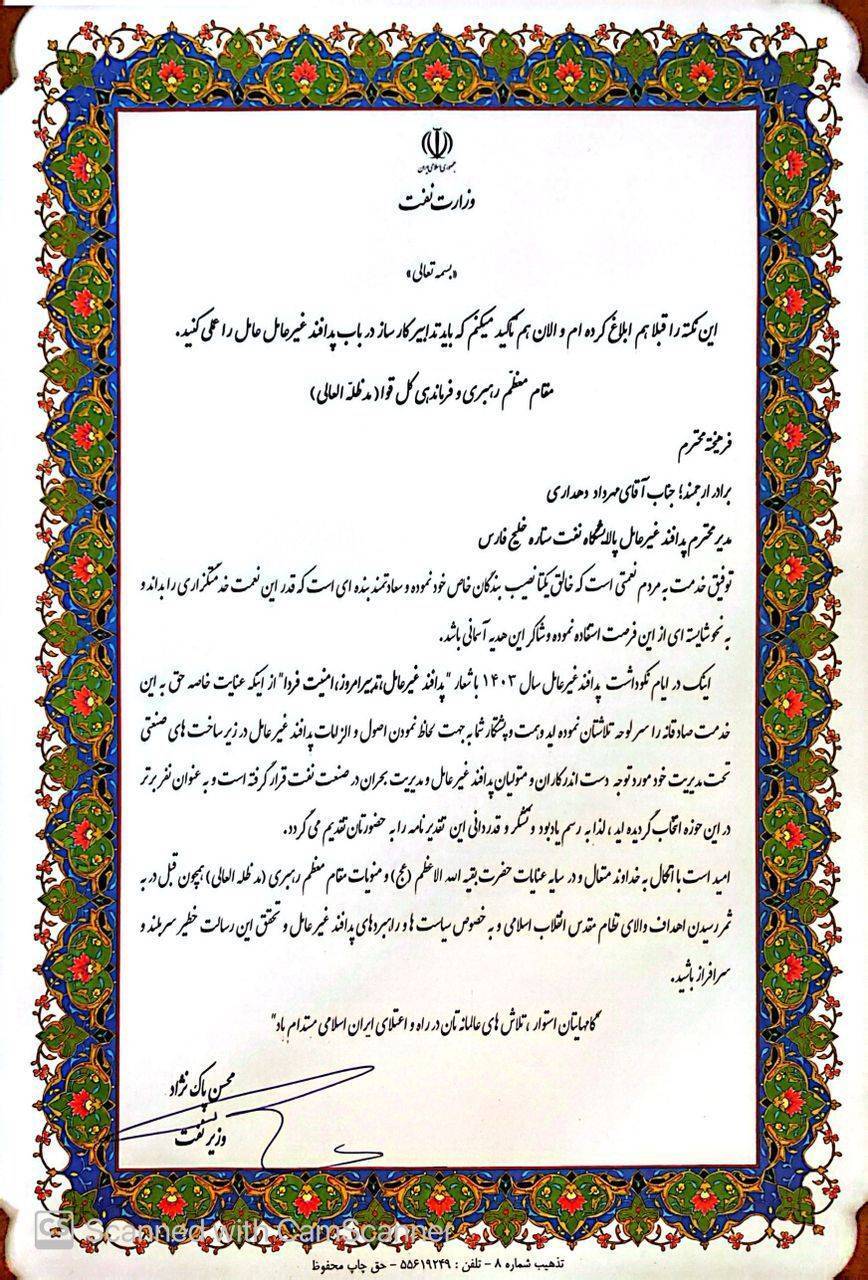 جمهوری اسلامی ایران
وزارت نفت
«بسمه تعالی»
این نکته را قبلا هم ابلاغ کرده ام و الان هم تاکید میکنم که باید تدابیر کار ساز در باب پدافند غیرعامل عامل را عملی کنید.
مقام معظّم رهبری و فرماندهی کل قوا (مدظلّه العالی)
فرهیخته محترم
برادر ارجمند؛ جناب آقای مهرداد دهداری
مدیر محترم پدافند غیرعامل پالایشگاه نفت ستاره خلیج فارس
توفیق خدمت به مردم نعمتی است که خالق یکتا نصیب بندگان خاص خود نموده و سعادتمند بنده ای است که قدر این نعمت خدمتگزاری را بداند و
به نحو شایسته ای از این فرصت استفاده نموده و شاکر این هدیه آسمانی باشد.
اینک در ایام نکوداشت پدافند غیرعامل سال ۱۴۰۳ با شعار "پدافند غیرعامل،تدبیر امروز،امنیت فردا" از اینکه عنایت خاصه حق به این
خدمت صادقانه را سرلوحه تلاشتان نموده اید و همت و پشتکار شما به جهت لحاظ نمودن اصول و الزامات پدافند غیر عامل در زیر ساخت های صنعتی
تحت مدیریت خود مورد توجه دست اندرکاران و متولیان پدافند غیرعامل و مدیریت بحران در صنعت نفت قرار گرفته است و به عنوان نفر برتر
در این حوزه انتخاب گردیده اید، لذا به رسم یادبود و تشکر و قدردانی این تقدیرنامه را به حضورتان تقدیم می گردد.
امید است با اتکال به خداوند متعال و در سایه عنایات حضرت بقیه الله الاعظم (عج) و منویات مقام معظم رهبری (مدظله العالی) همچون قبل در به
ثمر رسیدن اهداف والای نظام مقدس انقلاب اسلامی و به خصوص سیاست ها و راهبردهای پدافند غیرعامل و تحقق این رسالت خطیر سربلند و
سرافراز باشید.
گامهایتان استوار، تلاش های عالمانه تان در راه و اعتلای ایران اسلامی مستدام باد"
محسن پاک نژاد
وزیر نفت
CS Scanned with CamScanner
تذهیب شماره ۸ - تلفن : ۵۵۶۱۹۲۴۹ - حق چاپ محفوظ